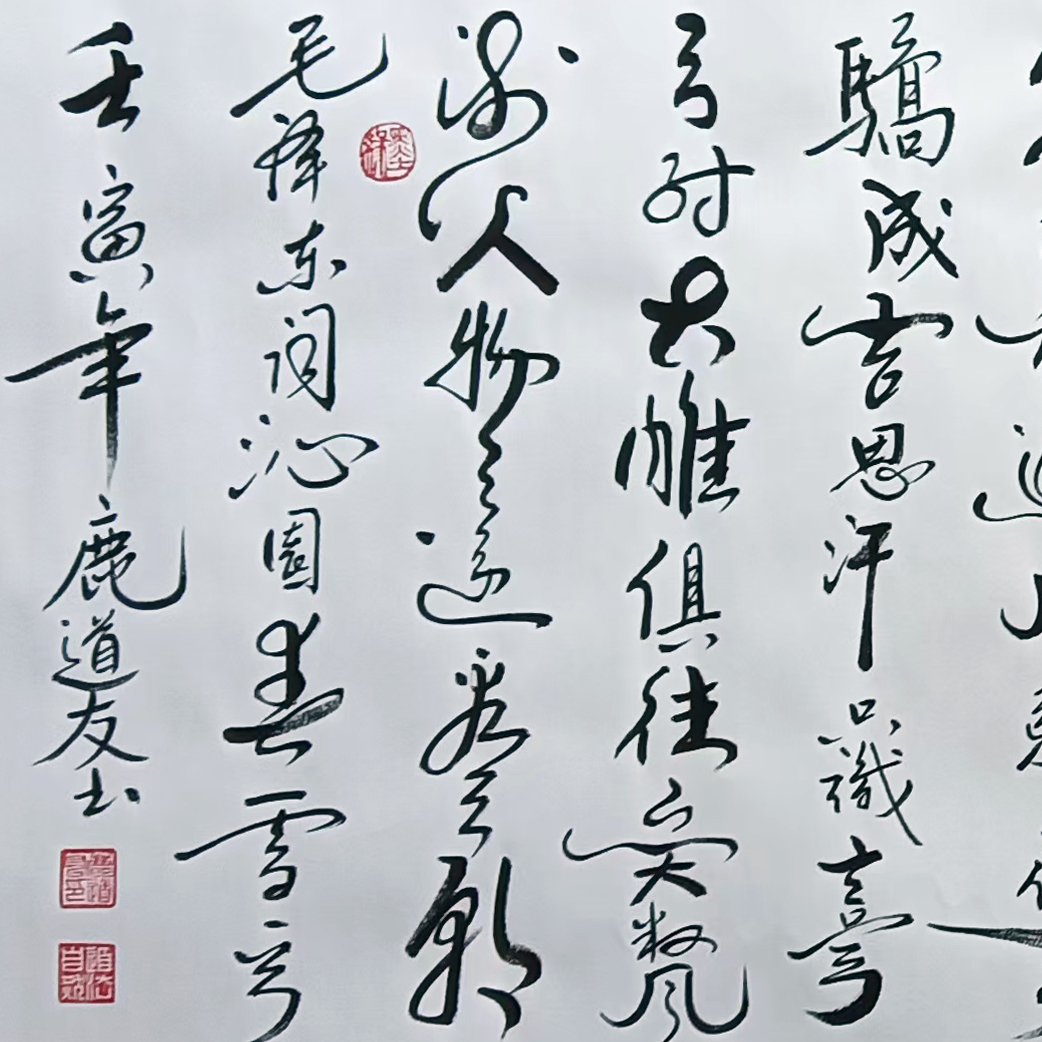 驕成吉思汗只識彎
弓射大雕俱往矣数风
流人物還看今朝
毛澤东词沁園春雪
壬寅年鹿道友书